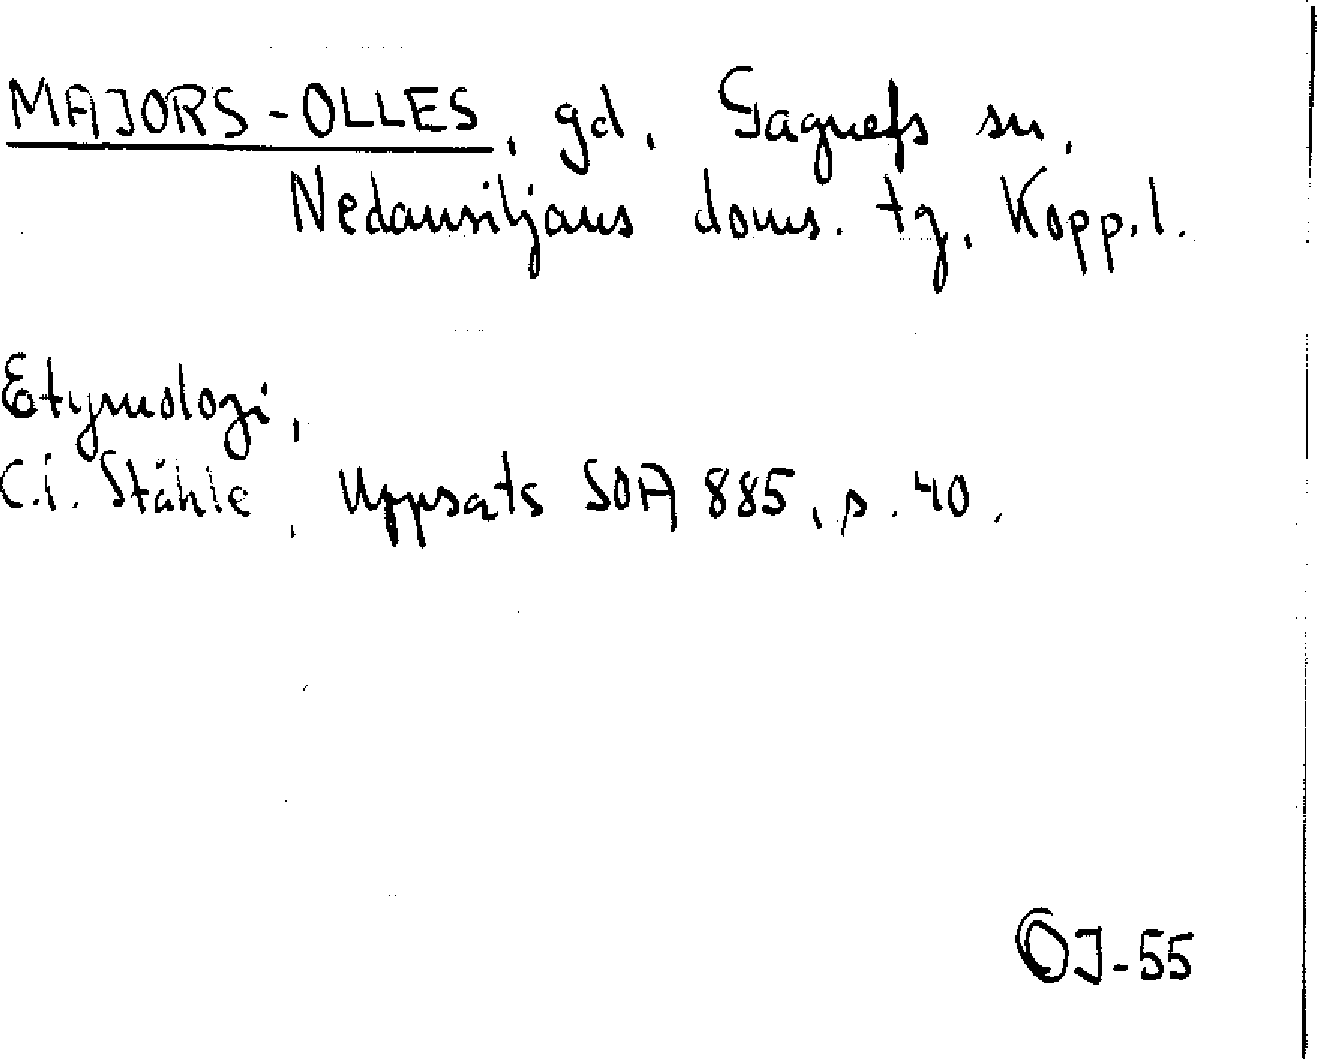 MAJORS-OLLES, gd, Gagnefs sn,
Nedansiljans doms. tg, Kopp. l.
Etymologi,
C.i. Ståhle, Uppsats SOA 885, s. 40.
OJ-55